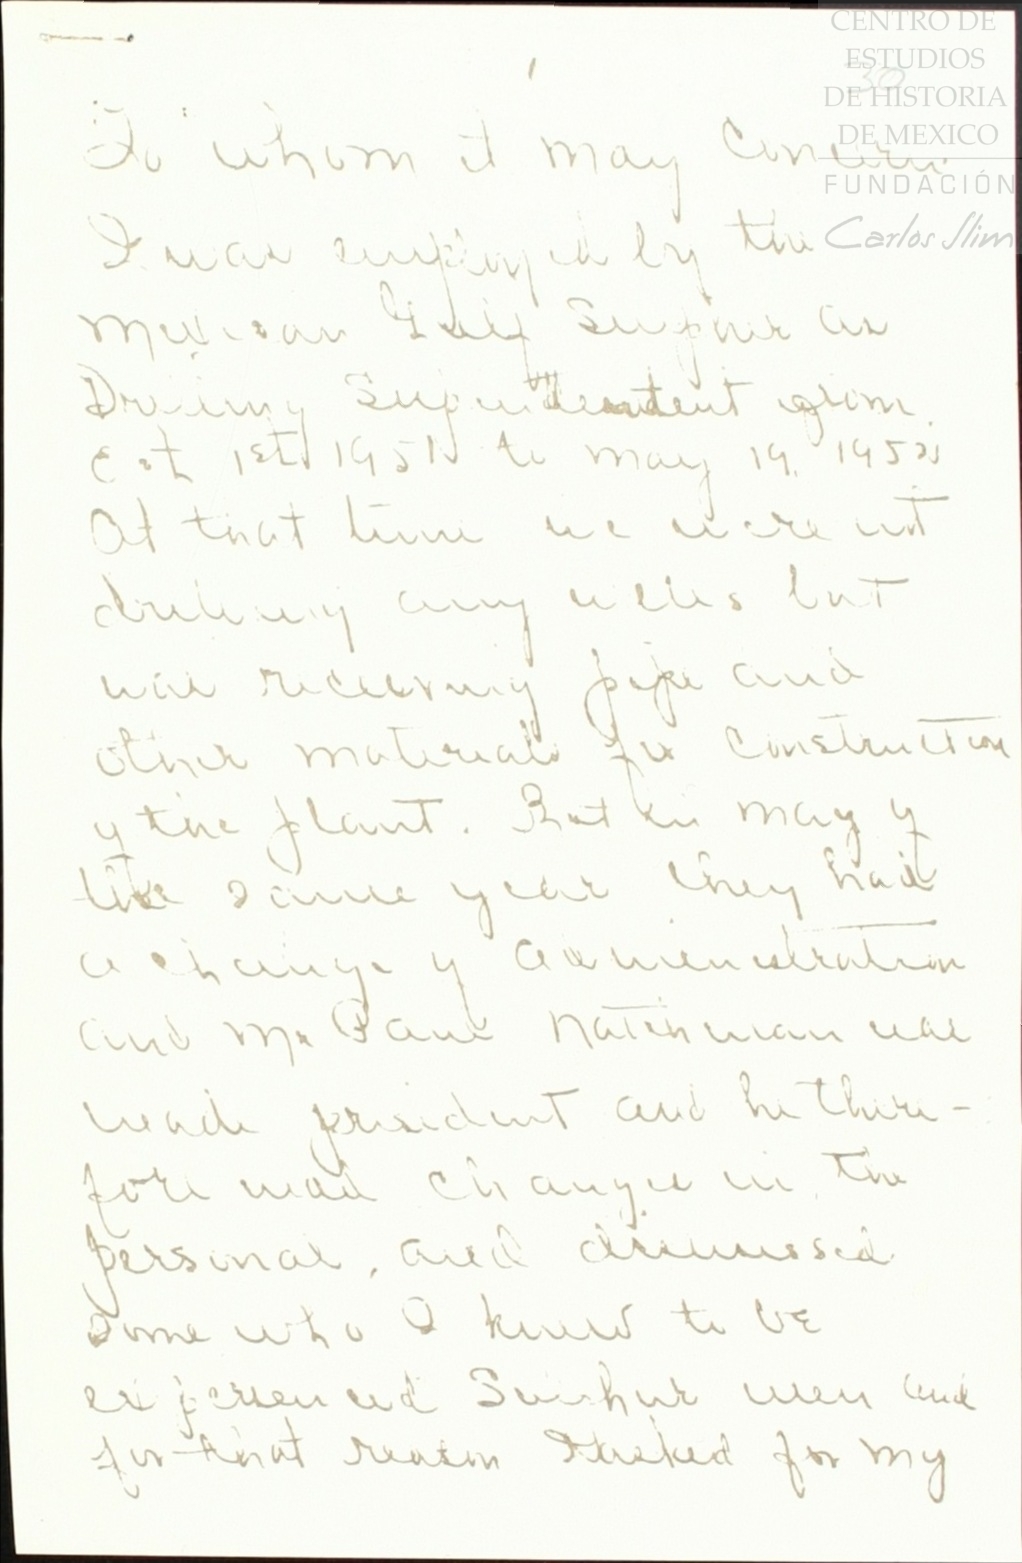 CENTRO DE
ESTUDIOS
DE HISTORIA
DE MEXICO
FUNDACIÓN
Carlos Slim
30
1
To whom it may Concern.
I was employed by the
Mexican Gulf Sulphur as
Drilling Superintendent from
1st 1951 to May 19, 1952
At that time we were not
drilling any wells but
was receiving pipe and
other materials for Construction
of the plant. But in May of
the same year they had
a change of administration
and Mr Paul Nachtman was
made president and he there-
fore mad changes in the
personal, and dismissed
some who I knew to be
experienced Sulphur men and
for that reason I asked for my